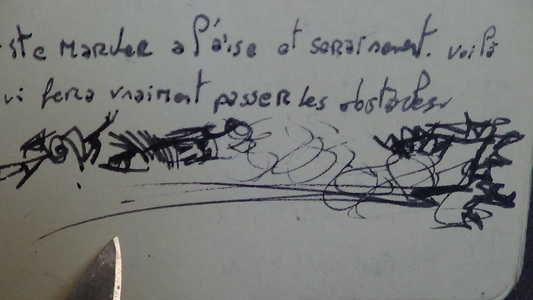 marcher a l'aise et serainement. voilà
vi fera vraiment passer les obstacles